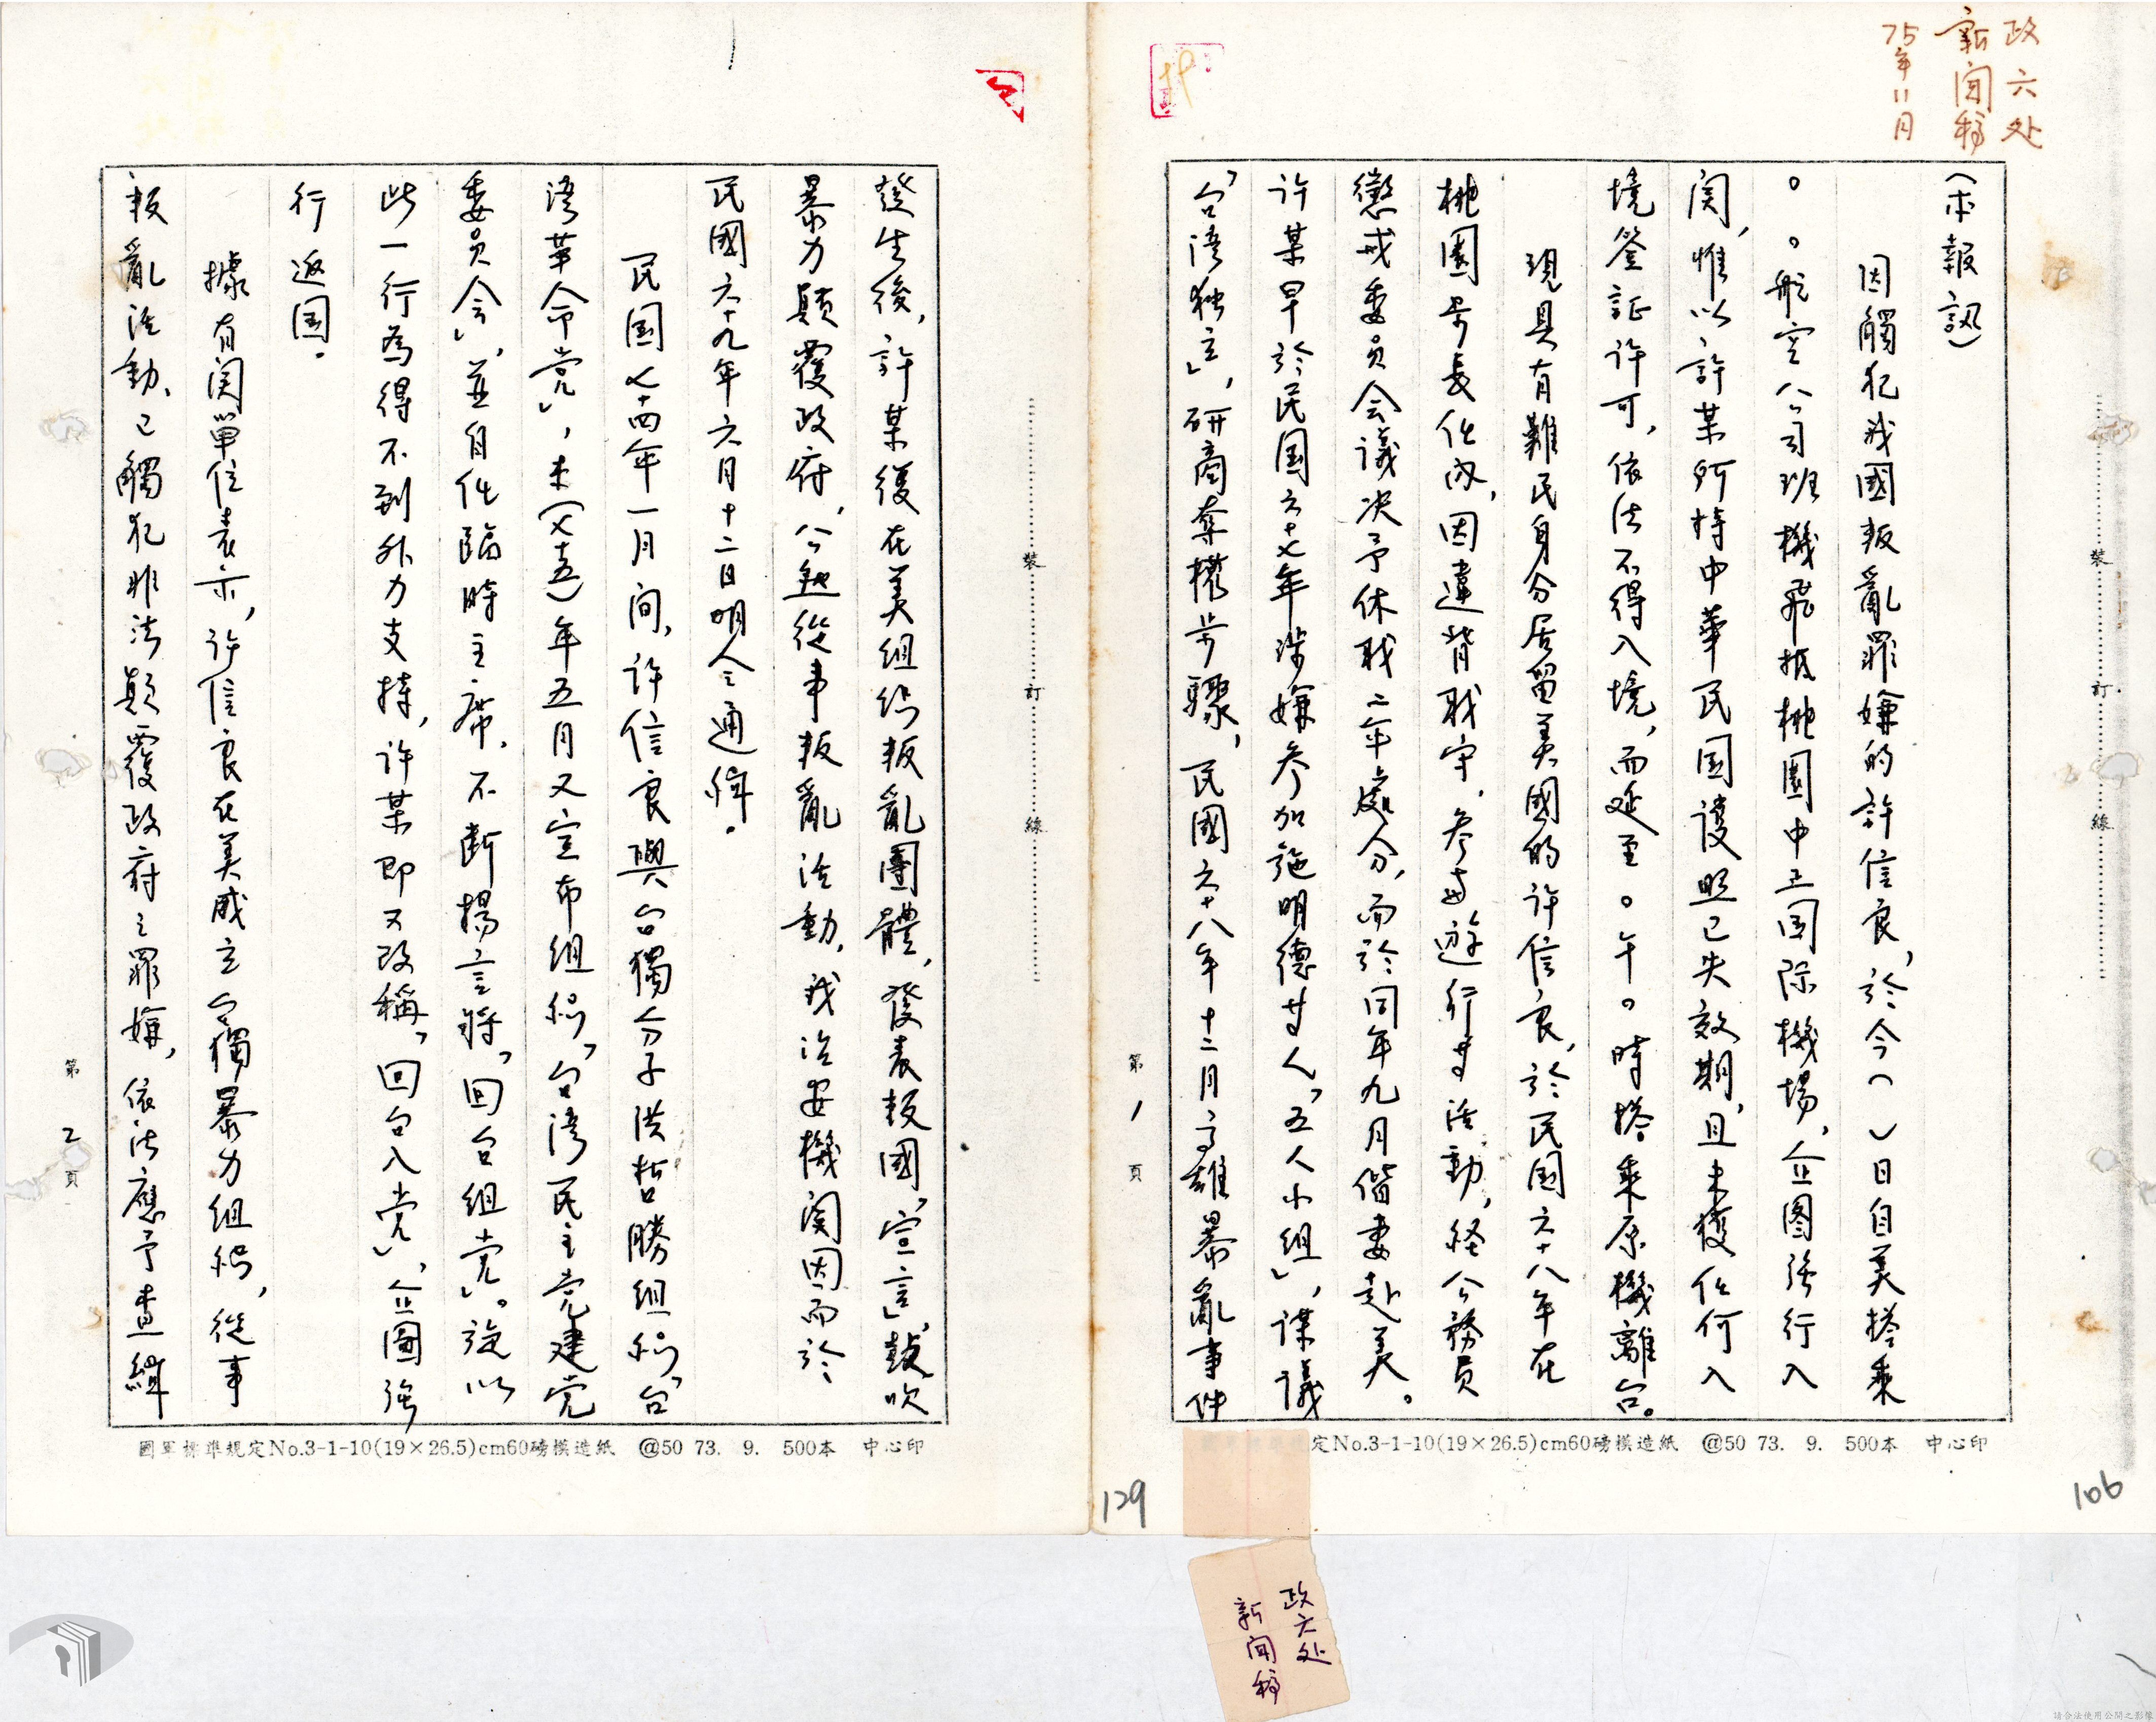 政六处
新聞稿
75年11月
（本報訊）
因觸犯我國叛亂罪嫌的許信良，於今（ ）日自美搭乘
○○航空公司班機飛抵桃園中正国际機場，企图強行入
関，惟以許某所持中華民国護照已失效期，且未獲任何入
境簽証许可，依法不得入境，而延至○午○時搭乘原機離台。
現具有難民身分居留美國的许信良，於民国六十八年在
桃園县長任內，因違背职守，参与遊行等活動，経公務員
懲戒委员会議决予休职二年處分，而於同年九月偕妻赴美。
许某早於民国六十七年涉嫌参加施明德等人「五人小组」，謀議
「台湾独立」，研商奪權步驟，民國六十八年十二月高雄暴亂事件
第1頁
國軍標準規定No.3-1-10(19×26.5)cm60磅模造紙 @50 73. 9. 500本 中心印
106
裝訂線
發生後，許某復在美组织叛亂團體，發表叛國「宣言」，鼓吹
暴力顛覆政府，公然從事叛亂活動，我治安機関因而於
民國六十九年六月十二日明令通缉。
民国七十四年一月间，许信良與台獨分子洪哲勝组织「台
湾革命党」，本（七十五）年五月又宣布组织「台湾民主党建党
委员会」，並自任臨時主席，不断揚言将「回台组党」。旋以
此一行為得不到外力支持，许某即又改稱「回台入党」，企圖強
行返国。
據有関單位表示，许信良在美成立台獨暴力组织，從事
叛亂活動，已觸犯非法顛覆政府之罪嫌，依法應予查緝
第2頁
國軍標準規定No.3-1-10(19×26.5)cm60磅模造紙 @50 73. 9. 500本 中心印
129
裝訂線
政六处
新聞稿
請合法使用公開之影像